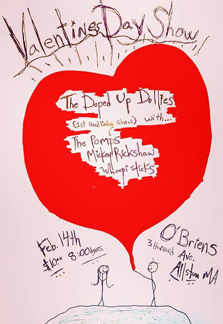 Valentines Day Show
The Doped Up Dollies
(1st Headlining show) with...
The Pomps
Mickey Rickshaw
Whoopi Sticks
Feb. 14th
$10.00 8:00
O'Briens
3 Harvard Ave.
Allston MA